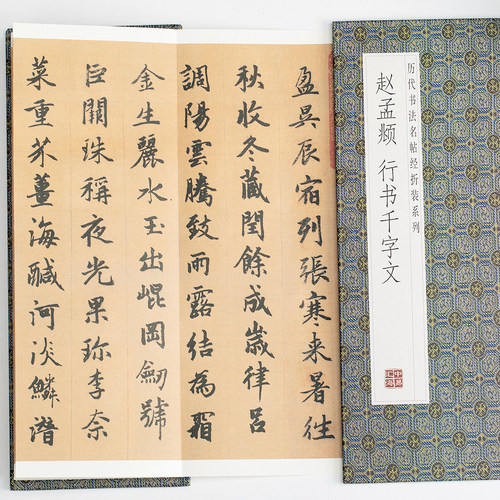 历代书法名帖经折装系列
赵孟頫 行书千字文
盈昃辰宿列張寒来暑往
秋收冬藏閏餘成歲律呂
調陽雲騰致雨露結為霜
金生麗水玉出崐岡劒號
巨闕珠稱夜光果珍李奈
菜重芥薑海鹹河淡鱗潛